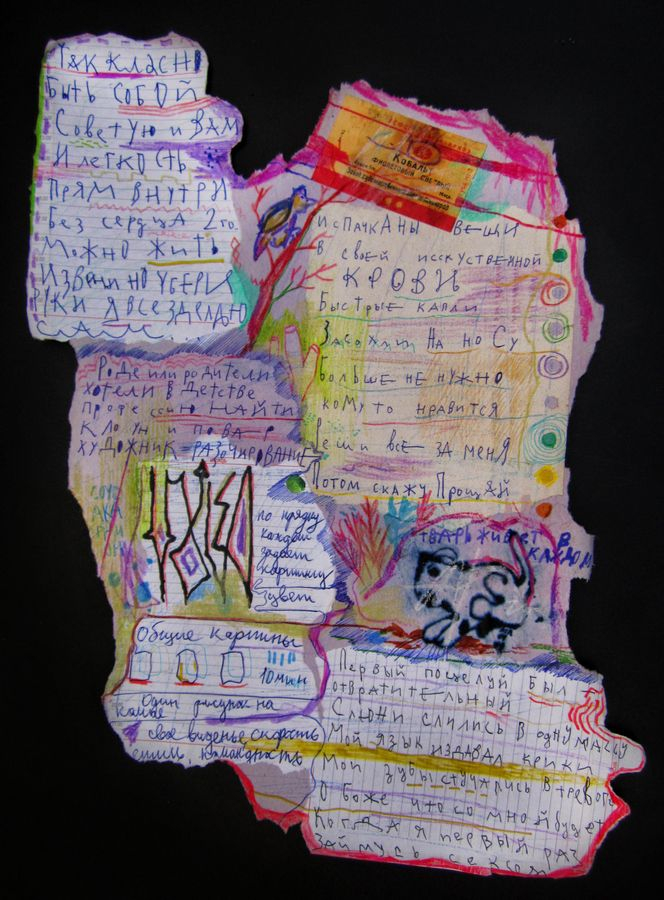 Так класно
Быть собой
Советую и вам
И легкость
прям внутри
без сердца 2го
можно жить
Извени но убери
руки я все зделаю
сам
Кобальт
фиолетовый светлый
испачканы вещи
в своей исскуственной
крови
Быстрые капли
Засохли на носу
Больше не нужно
кому то нравится
Реши все за меня
Потом скажу Прощай
Роде или родители
хотели в детстве
професcию найти
клоун и повар
художник = разочирование
по прядку
каждый
задает
картинку
зувет
тварь живет в
каждом
Общие картины
10 мин
Один рисунок на
свое виденье скорость
стиль, командность
Первый поцелуй был –
отвратительный
Слюни слились в одну массу
Мой язык издавал крики
Мои зубы стучались в тревоге
О боже что со мной будет
Когда я первый раз
займусь сексом